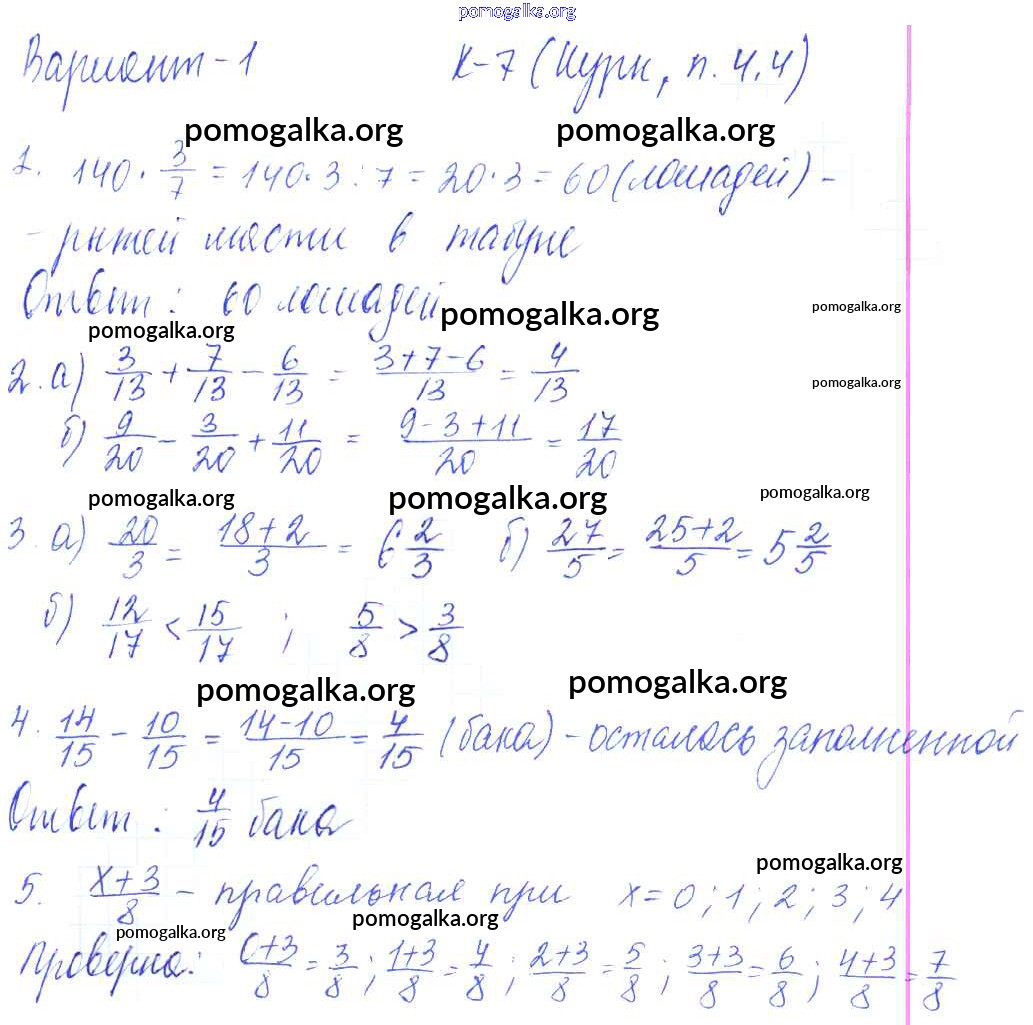 pomogalka.org
Вариант-1 К-7 (Нурк, п. 4.4)
pomogalka.org pomogalka.org
1. 140 · 3/7 = 140·3:7 = 20·3 = 60 (лошадей) -
- рыжей масти в табуне
Ответ: 60 лошадей
pomogalka.org pomogalka.org pomogalka.org
2. а) 3/13 + 7/13 - 6/13 = (3+7-6)/13 = 4/13
pomogalka.org
б) 9/20 - 3/20 + 11/20 = (9-3+11)/20 = 17/20
pomogalka.org pomogalka.org pomogalka.org
3. а) 20/3 = (18+2)/3 = 6 2/3 б) 27/5 = (25+2)/5 = 5 2/5
б) 12/17 < 15/17 ; 5/8 > 3/8
pomogalka.org pomogalka.org
4. 14/15 - 10/15 = (14-10)/15 = 4/15 (бака) - осталось заполненной
Ответ: 4/15 бака
pomogalka.org
5. (x+3)/8 - правильная при x = 0; 1; 2; 3; 4
pomogalka.org pomogalka.org
Проверка: (0+3)/8 = 3/8; (1+3)/8 = 4/8; (2+3)/8 = 5/8; (3+3)/8 = 6/8; (4+3)/8 = 7/8